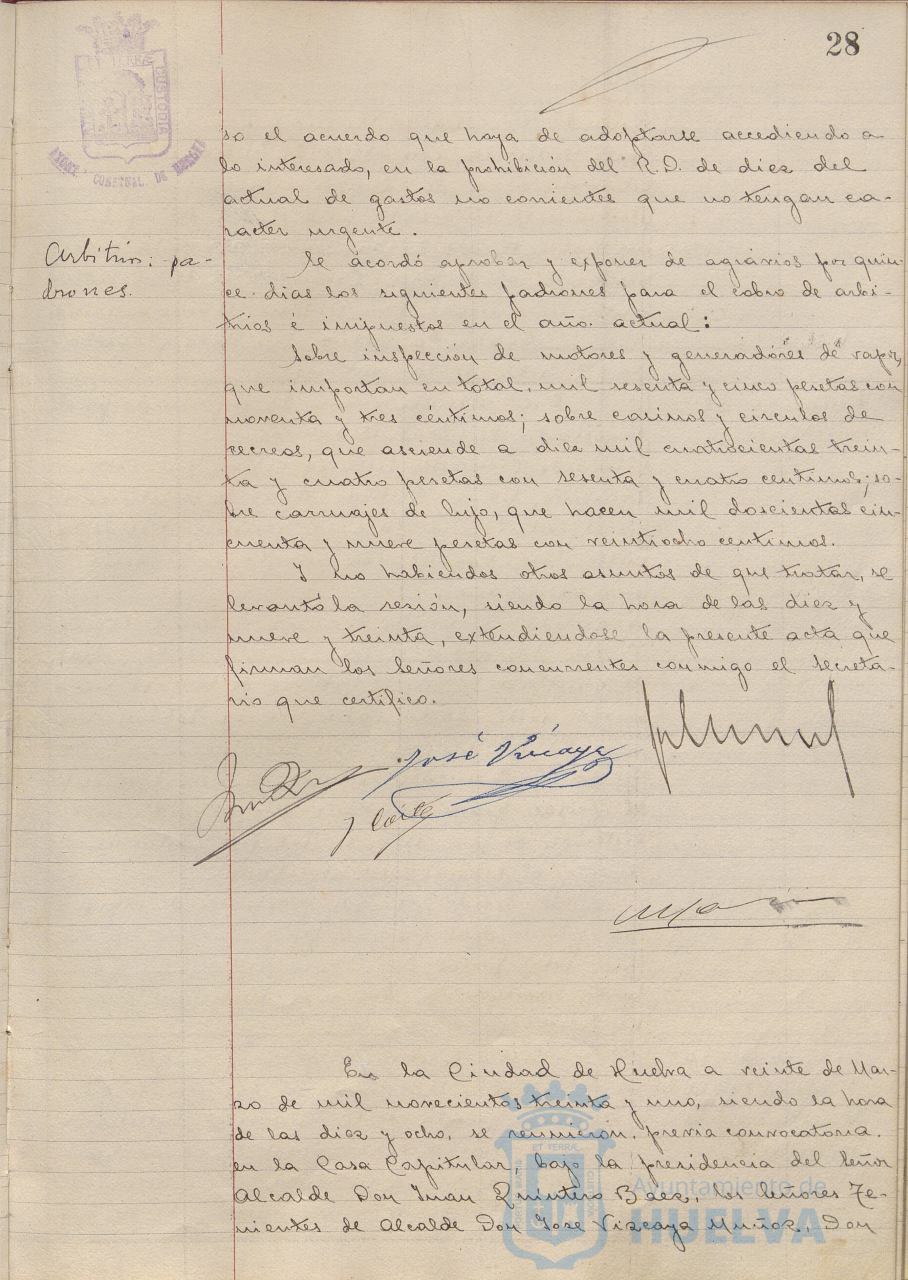 28
so el acuerdo que haya de adoptarse accediendo a
lo interesado, en la prohibición del R.D. de diez del
actual de gastos no corrientes que no tengan ca-
racter urgente.
Arbitrios: pa-
drones.
Se acordó aprobar y exponer de agravios por quin-
ce dias los siguientes padrones para el cobro de arbi-
trios é impuestos en el año actual:
Sobre inspección de motores y generadores de vapor,
que importan en total, mil sesenta y cinco pesetas con
noventa y tres céntimos; sobre casinos y circulos de
recreos, que asciende a diez mil cuatrocientas trein-
ta y cuatro pesetas con sesenta y cuatro centimos; so-
bre carruajes de lujo, que hacen mil doscientas cin-
cuenta y nueve pesetas con veintiocho centimos.
Y no habiendos otros asuntos de que tratar, se
levantó la sesión, siendo la hora de las diez y
nueve y treinta, extendiendose la presente acta que
firman los Señores concurrentes conmigo el Secreta-
rio que certifico.
José Vizcaya
En la Ciudad de Huelva a veinte de Mar-
zo de mil novecientos treinta y uno, siendo la hora
de las diez y ocho, se reunieron, previa convocatoria,
en la Casa Capitular, bajo la presidencia del Señor
Alcalde Don Juan Quintero Báez, los Señores Te-
nientes de Alcalde Don José Vizcaya Muñoz, Don
Ayuntamiento de
HUELVA